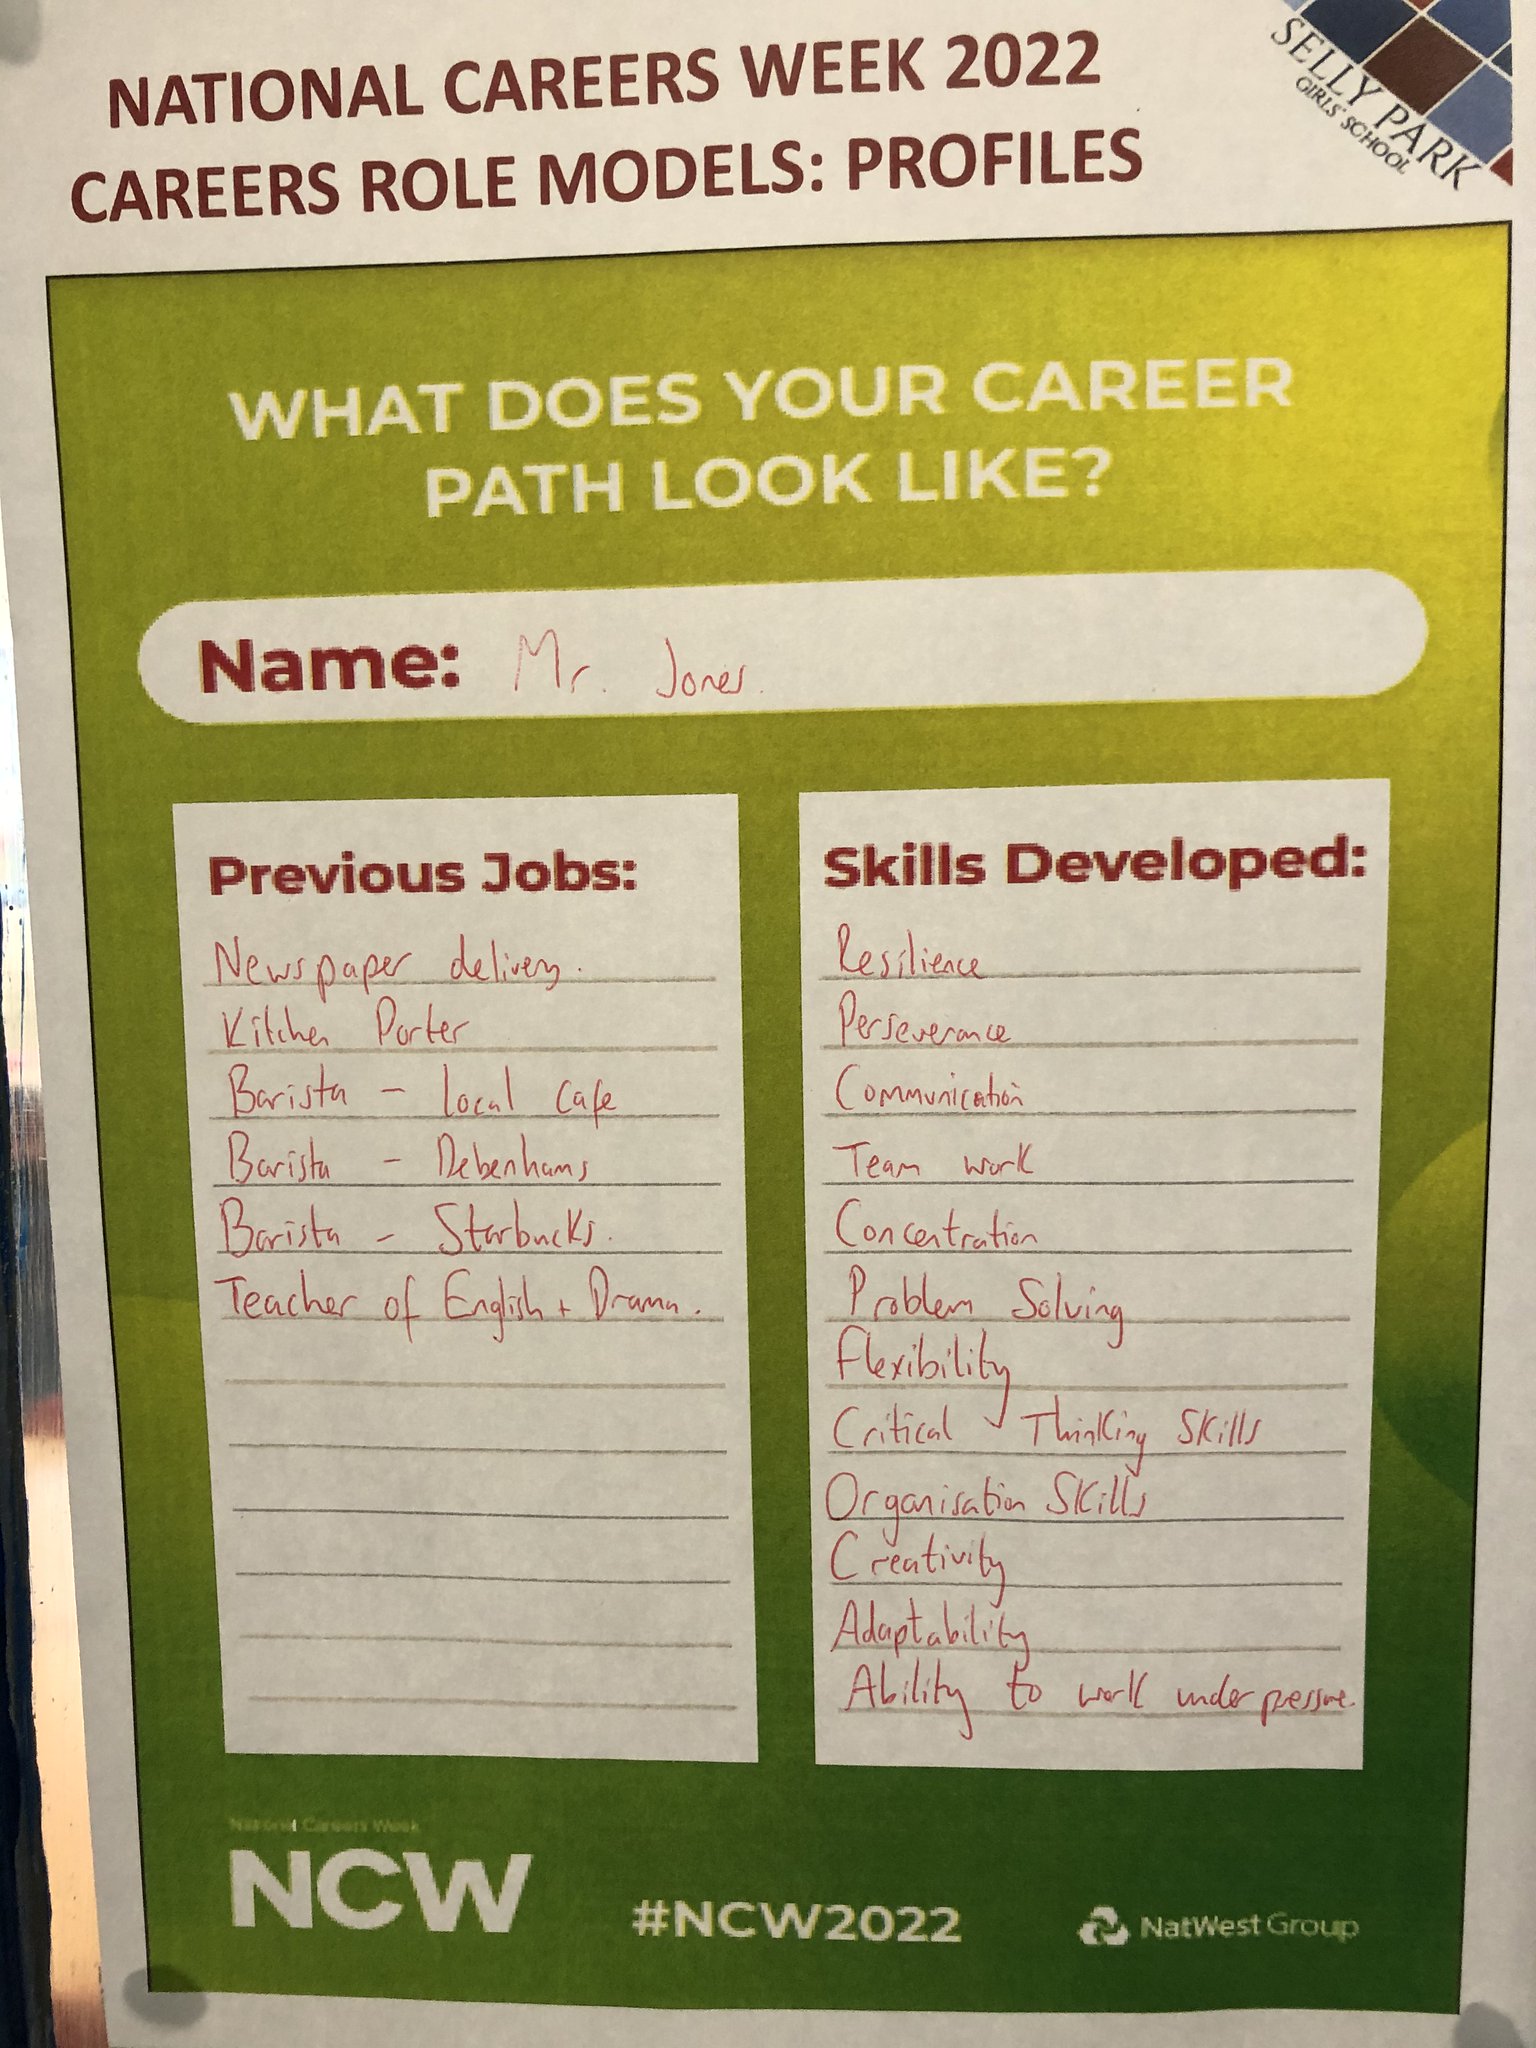 NATIONAL CAREERS WEEK 2022
CAREERS ROLE MODELS: PROFILES
SELLY PARK
GIRLS' SCHOOL
WHAT DOES YOUR CAREER
PATH LOOK LIKE?
Name: Mr. Jones.
Previous Jobs:
Newspaper delivery.
Kitchen Porter
Barista - local cafe
Barista - Debenhams
Barista - Starbucks.
Teacher of English + Drama.
Skills Developed:
Resilience
Perseverance
Communication
Team work
Concentration
Problem Solving
Flexibility
Critical Thinking Skills
Organisation Skills
Creativity
Adaptability
Ability to work under pressure.
National Careers Week
NCW
#NCW2022
NatWest Group